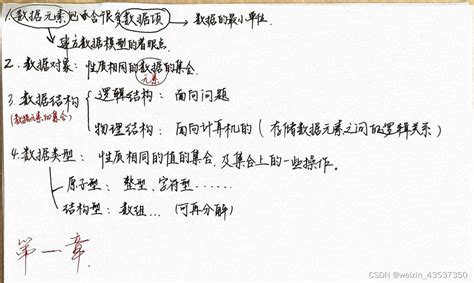 1.数据元素包含很多数据项 → 数据的最小单位.
建立数据模型的着眼点
2.数据对象：性质相同的数据的集合.
元素
3.数据结构
(数据元素的集合)
逻辑结构：面向问题
物理结构：面向计算机的(存储数据元素之间的逻辑关系)
4.数据类型：性质相同的值的集合,及集合上的一些操作。
原子型：整型,字符型……
结构型：数组…(可再分解)
第一章.
CSDN @weixin_43537350